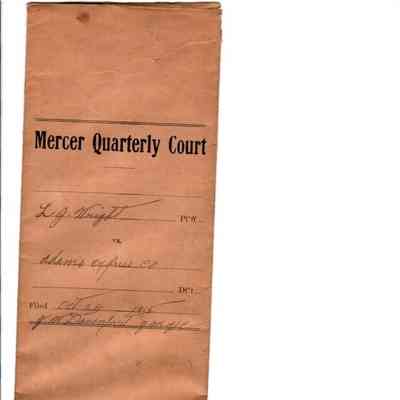 Mercer Quarterly Court
L. J. Wright Pl'ff.
vs.
Adams Express Co
Df't.
Filed Oct 28 1915